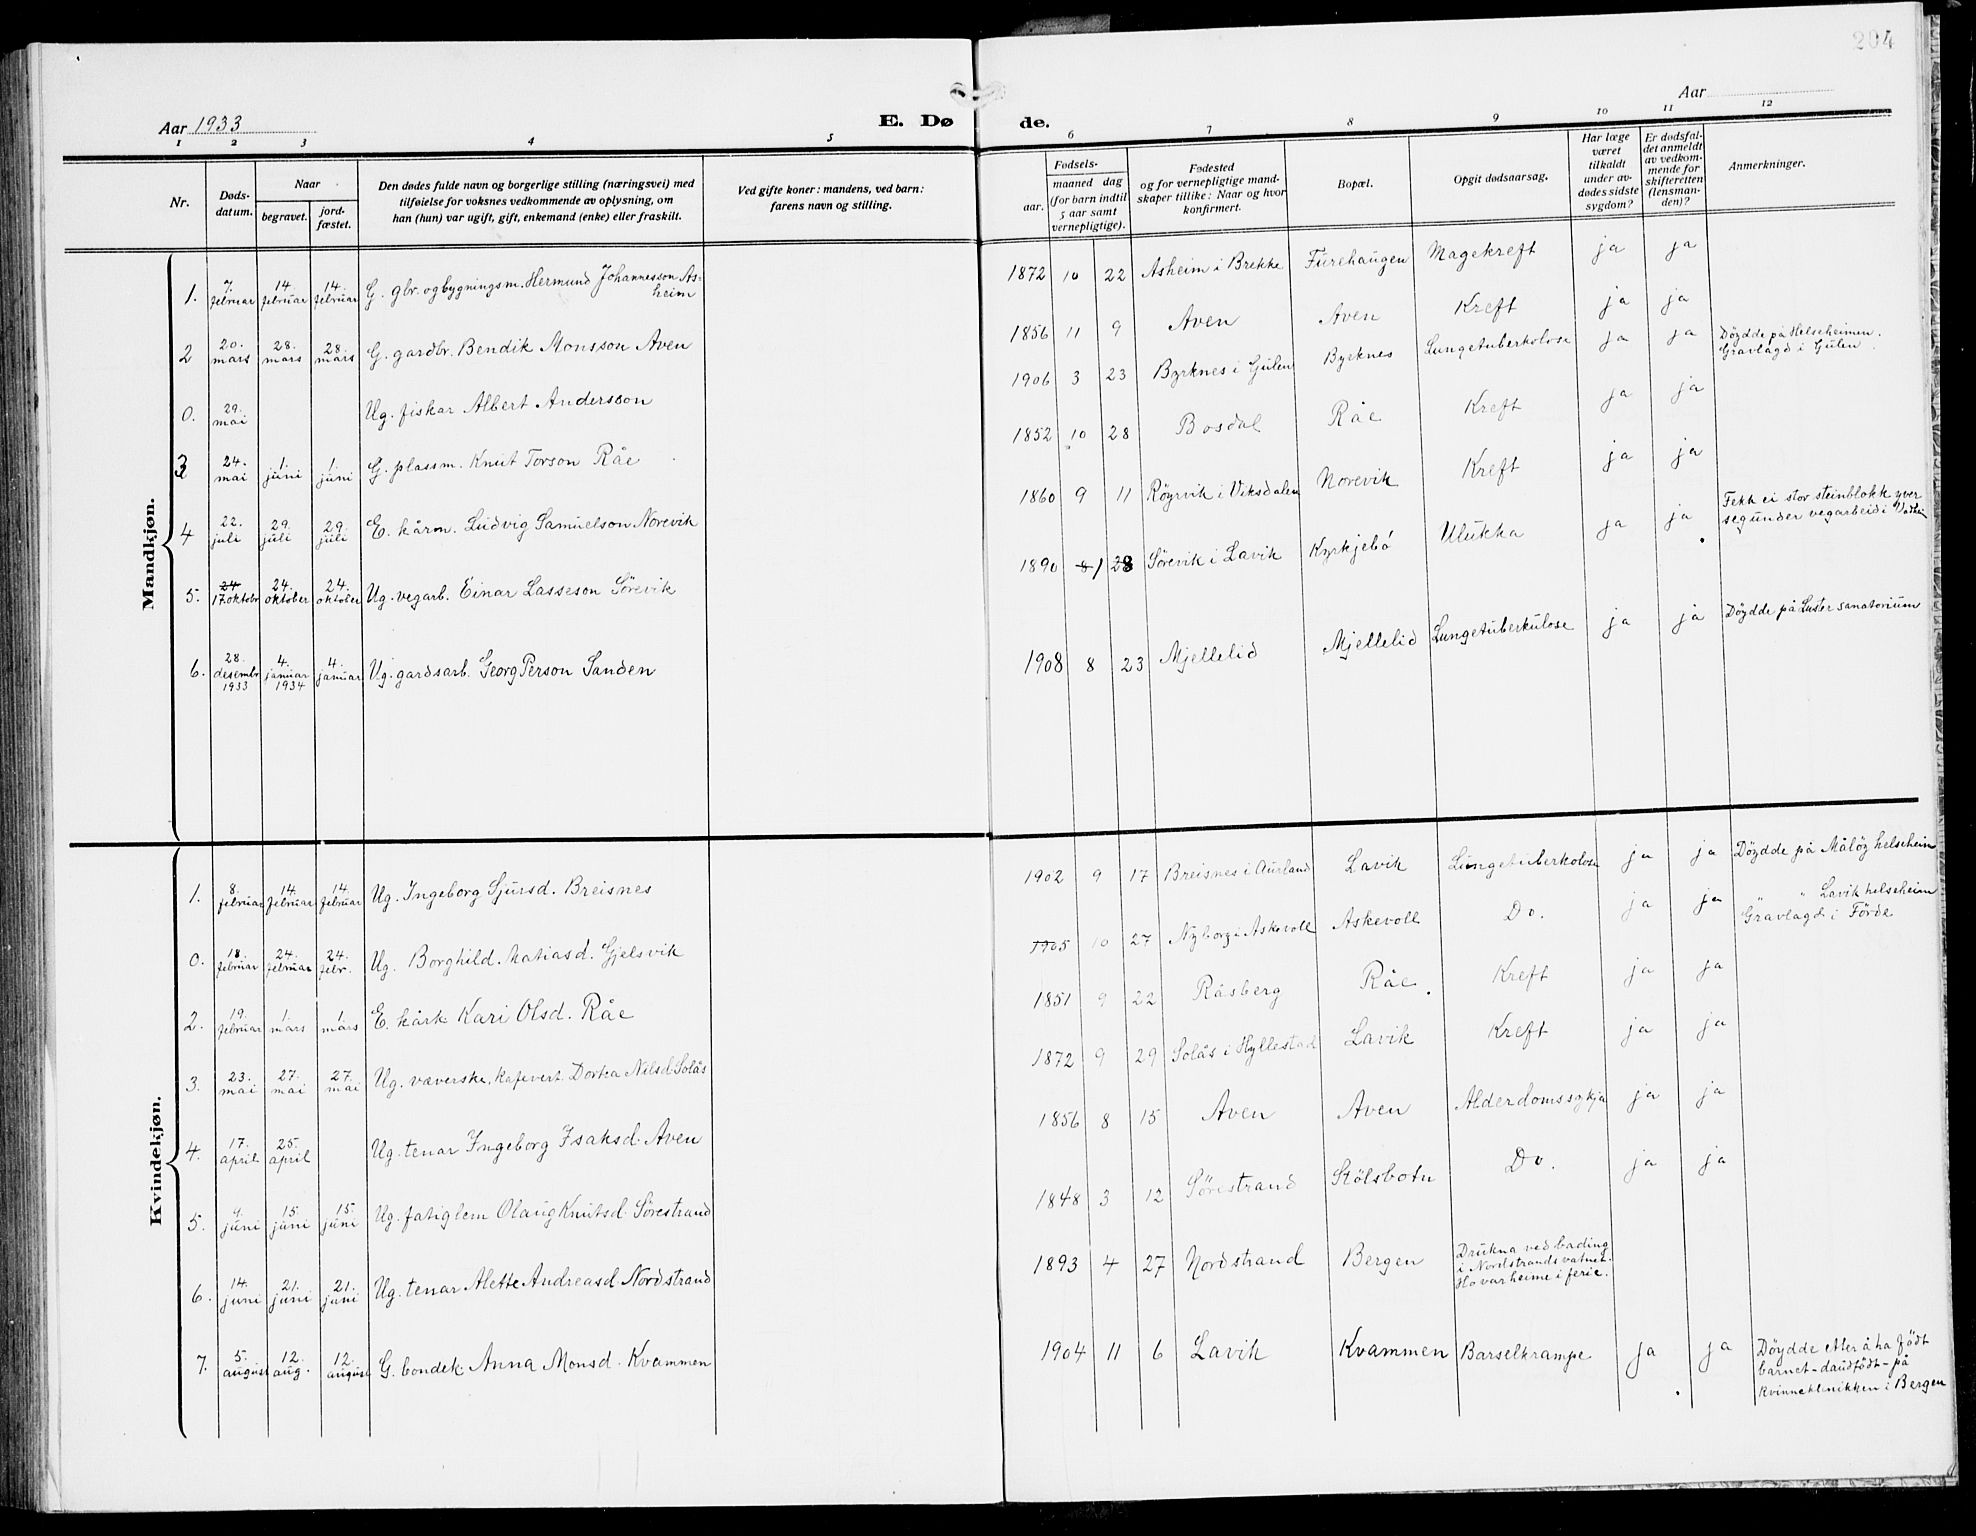 204
Aar 1933
E. Dø
de.
Aar
1 2 3 4 5 6 7 8 9 10 11 12
Nr.
Døds-
datum.
Naar
begravet.
jord-
fæstet.
Den dødes fulde navn og borgerlige stilling (næringsvei) med
tilføielse for voksnes vedkommende av oplysning, om
han (hun) var ugift, gift, enkemand (enke) eller fraskilt.
Ved gifte koner: mandens, ved barn:
farens navn og stilling.
Fødsels-
aar.
maaned dag
(for barn indtil
5 aar samt
vernepligtige).
Fødested
og for vernepligtige mand-
skaper tillike: Naar og hvor
konfirmert.
Bopæl.
Opgit dødsaarsag.
Har læge
været
tilkaldt
under av-
dødes sidste
sygdom?
Er dødsfal-
det anmeldt
av vedkom-
mende for
skifteretten
(lensman-
den)?
Anmerkninger.
Mandkjøn.
1. 7. februar 14. februar 14. februar G. gbr. og bygningsm. Hermund Johannesson As-
heim 1872 10 22 Asheim i Brekke Furehaugen Magekreft ja ja
2 20. mars 28. mars 28. mars G. gardbr. Bendik Monsson Aven 1856 11 9 Aven Aven Kreft ja ja
0. 29. mai Ug. fiskar Albert Andersson 1906 3 23 Byrknes i Gulen Byrknes Lungetuberkolose ja ja Döydde på Helseheimen.
Gravlagd i Gulen.
3 24. mai 1. juni 1. juni G. plassm. Knut Torson Råe 1852 10 28 Bosdal Råe Kreft ja ja
4 22. juli 29. juli 29. juli E. kårm. Ludvig Samuelson Norevik 1860 9 11 Röyrvik i Viksdalen Norevik Kreft ja ja
5. 24 17. oktobr 24. oktober 24. oktober Ug. vegarb. Einar Lasseson Sörevik 1890 8/ 28 Sörevik i Lavik Kyrkjebö Ulukka ja ja Fekk ei stor steinblokk yver
seg under vegarbeid i Vadhei
6. 28. desembr 1933 4. januar 1934 4. januar Ug. gardsarb. Georg Person Sanden 1908 8 23 Mjellelid Mjellelid Lungetuberkulose ja ja Döydde på Luster sanatorium
Kvindekjøn.
1. 8. februar 14. februar 14. februar Ug. Ingeborg Sjursd. Breisnes 1902 9 17 Breisnes i Aurland Lavik Lungetuberkolose ja ja Döydde på Målöy helseheim
0. 18. februar 24. februar 24. febr. Ug. Borghild Matiasd. Gjelsvik 1905 10 27 Nyborg i Askevoll Askevoll Do. ja ja " Lavik helseheim
Gravlagd i Förde
2. 19. februar 1. mars 1. mars E. kårk Kari Olsd. Råe 1851 9 22 Råsberg Råe Kreft ja ja
3. 23. mai 27. mai 27. mai Ug. væverske, kafevert Dorka Nilsd. Solås 1872 9 29 Solås i Hyllestad Lavik Kreft ja ja
4. 17. april 25. april Ug. tenar Ingeborg Isaksd. Aven 1856 8 15 Aven Aven Alderdomssykja ja ja
5. 9. juni 15. juni 15. juni Ug. fatiglem Olaug Knutsd. Sörestrand 1848 3 12 Sörestrand Stölsbotn Do. ja ja
6. 14. juni 21. juni 21. juni Ug. tenar Alette Andreasd. Nordstrand 1893 4 27 Nordstrand Bergen Drukna ved bading
i Nordstrandsvatnet.
Ho var heime i ferie.
7. 5. august 12. aug. 12. august G. bondek. Anna Monsd. Kvammen 1904 11 6 Lavik Kvammen Barselkrampe ja ja Döydde etter å ha födt
barnet - daudfödt - på
kvinneklinikken i Bergen